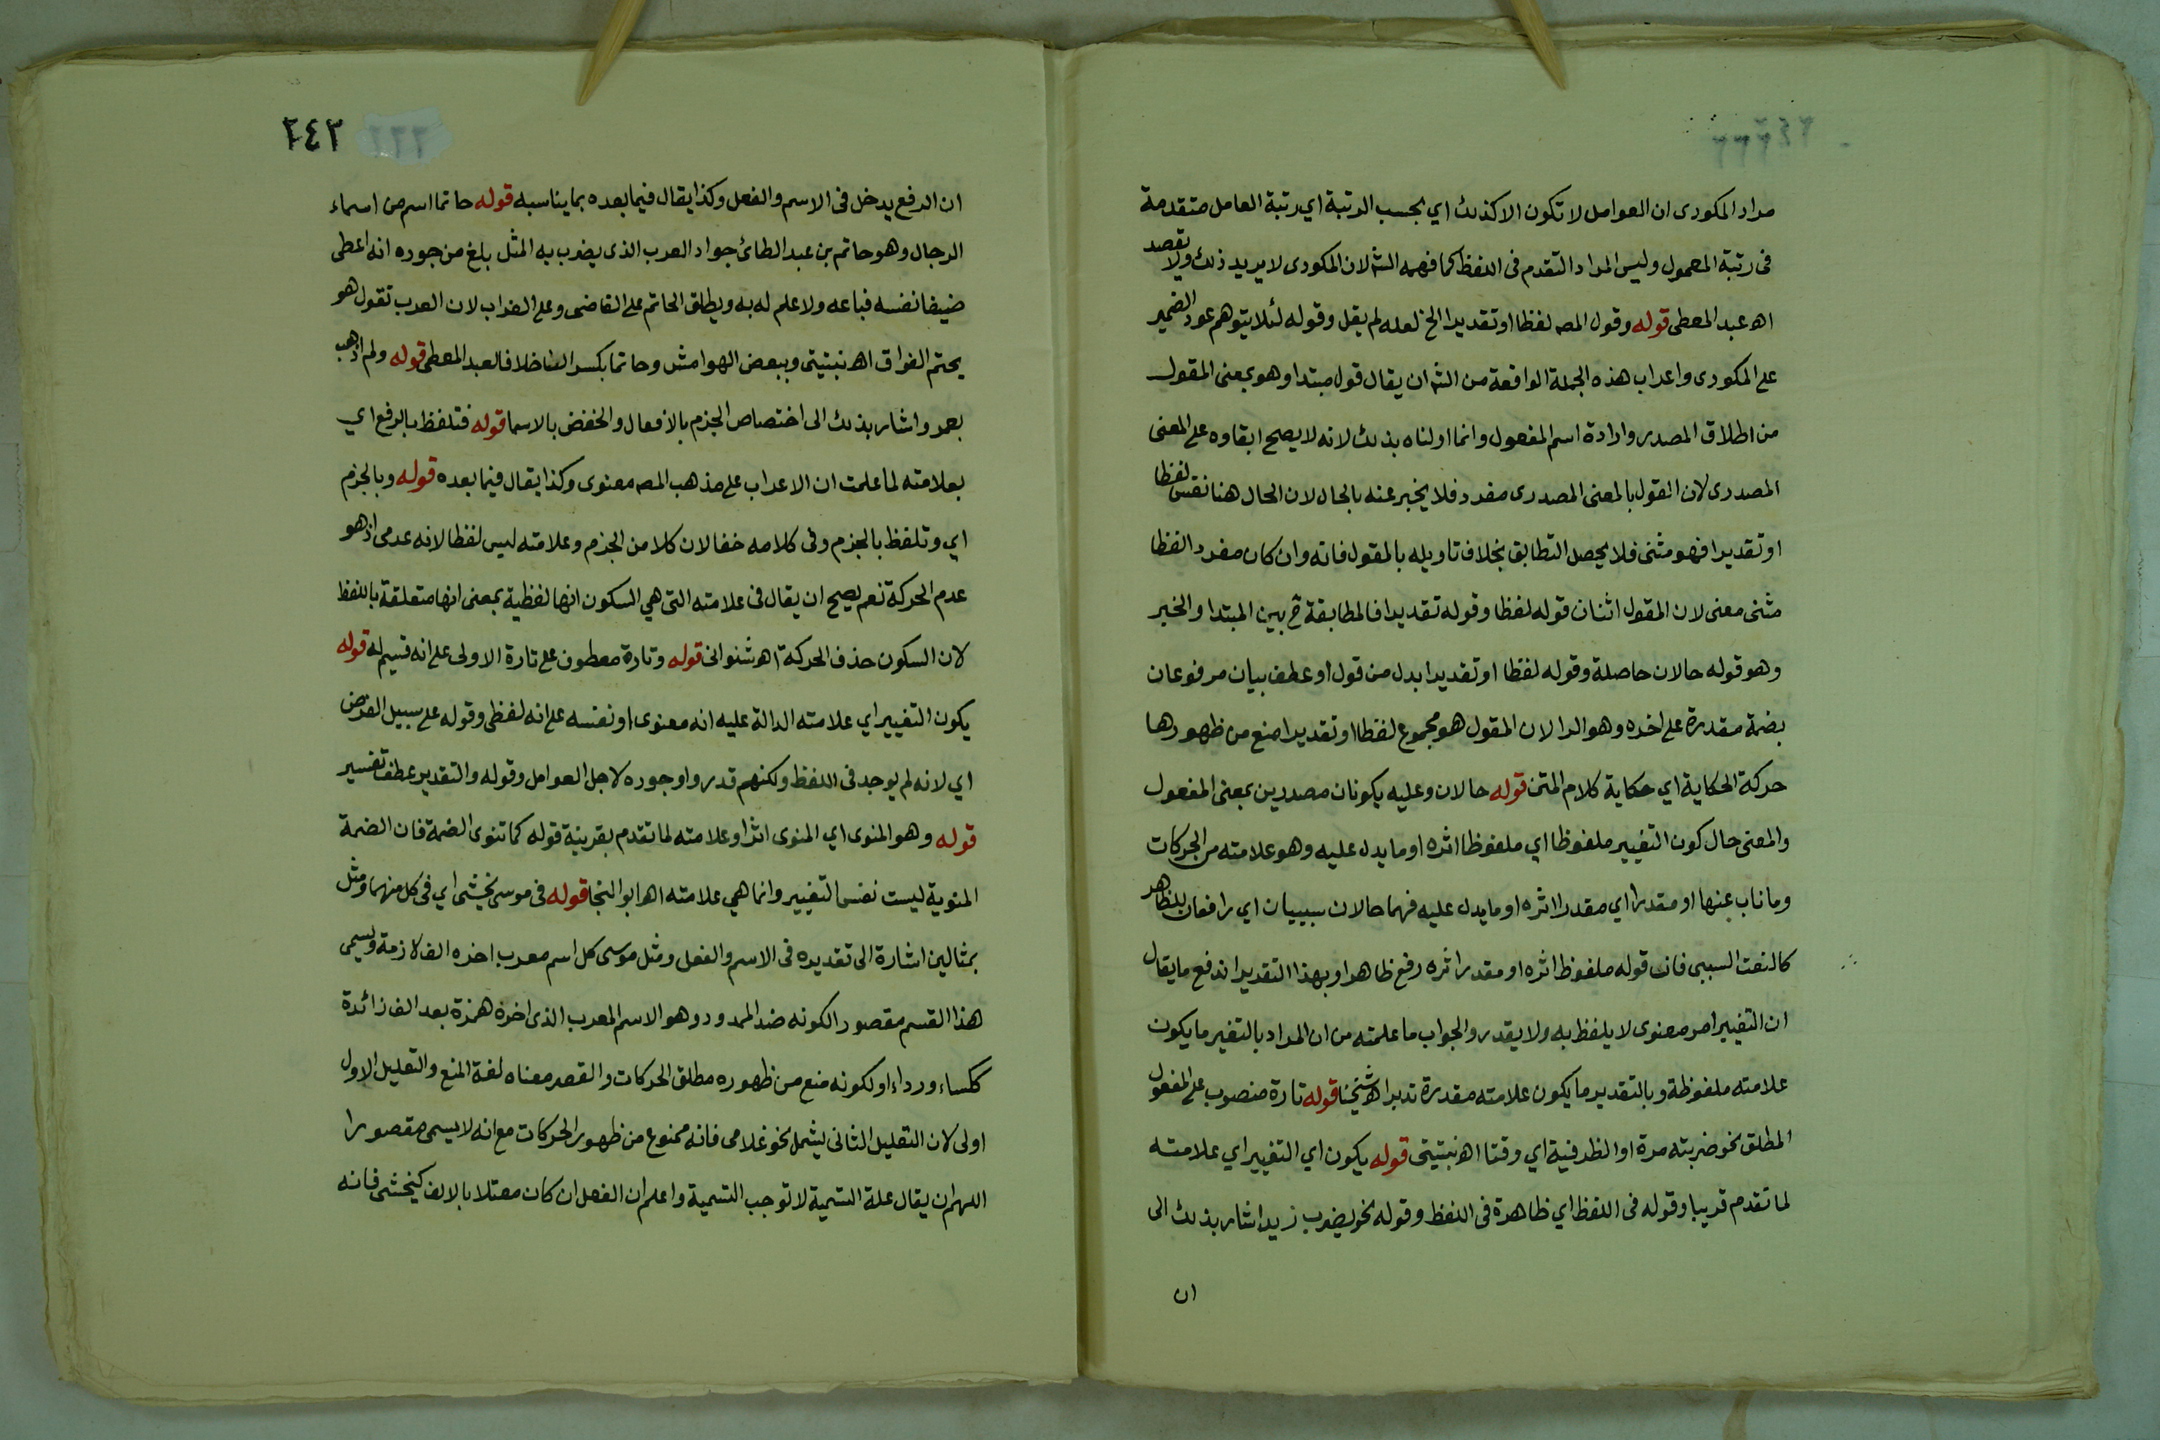 مراد المكودى ان العوامل لا تكون الا كذلك اي بحسب الرتبة اي رتبة العامل متقدمة
فى رتبة المعمول وليس المراد التقدم فى اللفظ كما فهمه الش لان المكودى لا يريد ذلك ولا يقصد
اه عبد المعطى قوله وقول المصه لفظا او تقديرا الخ لعله لم يقل وقوله لئلا يتوهم عود الضمير
على المكودى واعراب هذه الجملة الواقعة من الش ان يقال قول مبتدا وهو بمعنى المقول
من اطلاق المصدر وارادة اسم المفعول وانما اولناه بذلك لانه لا يصح ابقاوه على المعنى
المصدرى لان القول بالمعنى المصدرى مفرد فلا يخبر عنه بالحال لان الحال هنا نفس لفظا
او تقديرا فهو مثنى فلا يحصل التطابق بخلاف تاويله بالمقول فانه وان كان مفردا لفظا
مثنى معنى لان المقول اثنان قوله لفظا وقوله تقديرا فالمطابقة ح بين المبتدا والخبر
وهو قوله حالان حاصلة وقوله لفظا او تقديرا بدل من قول او عطف بيان مرفوعان
بضمة مقدرة على اخره وهو الرا لان المقول هو مجموع لفظا او تقديرا منع من ظهورها
حركة الحكاية اي حكاية كلام المتن قوله حالان وعليه يكونان مصدرين بمعنى المفعول
والمعنى حال كون التغيير ملفوظا اي ملفوظا اثره او ما يدل عليه وهو علامته من الحركات
وما ناب عنها او مقدرا اي مقدرا اثره او ما يدل عليه فهما حالان سببيان اي رافعان للظاهر
كالنعت السببى فان قوله ملفوظ اثره او مقدر اثره رفع ظاهرا وبهذا التقدير اندفع ما يقال
ان التغيير امر معنوى لا يلفظ به ولا يقدر والجواب ما علمته من ان المراد بالتغير ما يكون
علامته ملفوظة وبالتقدير ما يكون علامته مقدرة تدبر اه شيخنا قوله تارة منصوب على المفعول
المطلق نحو ضربته مرة او الظرفية اي وقتا اه نبتيتى قوله يكون اي التغيير اي علامته
لما تقدم قريبا وقوله فى اللفظ اي ظاهرة فى اللفظ وقوله نحو يضرب زيد اشار بذلك الى
ان
٢٤٣
ان الرفع يدخل فى الاسم والفعل وكذا يقال فيما بعده بما يناسبه قوله حاتما اسم من اسماء
الرجال وهو حاتم بن عبد الطائ جواد العرب الذى يضرب به المثل بلغ من جوده انه اعطى
ضيفا نفسه فباعه ولا علم له به ويطلق الحاتم على القاضى وعلى الغراب لان العرب تقول هو
يحتم الفراق اه نبتيتى وببعض الهوامش وحاتما بكسر التا خلافا لعبد المعطى قوله ولم اذهب
بعمرو اشار بذلك الى اختصاص الجزم بالافعال والخفض بالاسما قوله فتلفظ بالرفع اي
بعلامته لما علمت ان الاعراب على مذهب المصه معنوى وكذا يقال فيما بعده قوله وبالجزم
اي وتلفظ بالجزم وفى كلامه خفا لان كلا من الجزم وعلامته ليس لفظا لانه عدمى اذ هو
عدم الحركة نعم يصح ان يقال فى علامته التى هي السكون انها لفظية بمعنى انها متعلقة باللفظ
لان السكون حذف الحركة اه شنوانى قوله وتارة معطوف على تارة الاولى على انه قسيم له قوله
يكون التغيير اي علامته الدالة عليه انه معنوى او نفسه على انه لفظى وقوله على سبيل الفرض
اي لانه لم يوجد فى اللفظ ولكنهم قدروا وجوده لاجل العوامل وقوله والتقدير عطف تفسير
قوله وهو المنوى اي المنوى اثرا وعلامته لما تقدم بقرينة قوله كما تنوى الضمة فان الضمة
المنوية ليست نفس التغيير وانما هي علامته اه ابو النجا قوله فى موسى يخشى اي فى كل منهما ومثل
بمثالين اشارة الى تقديره فى الاسم والفعل ومثل موسى كل اسم معرب اخره الف لازمة ويسمى
هذا القسم مقصورا لكونه ضد الممدود وهو الاسم المعرب الذى اخره همزة بعد الف زائدة
ككساء ورداء او لكونه منع من ظهوره مطلق الحركات والقصر معناه لغة المنع والتعليل الاول
اولى لان التعليل الثانى يشمل نحو غلامى فانه ممنوع من ظهور الحركات مع انه لا يسمى مقصورا
اللهم ان يقال علة التسمية لا توجب التسمية واعلم ان الفعل ان كان معتلا بالالف كيخشى فانه